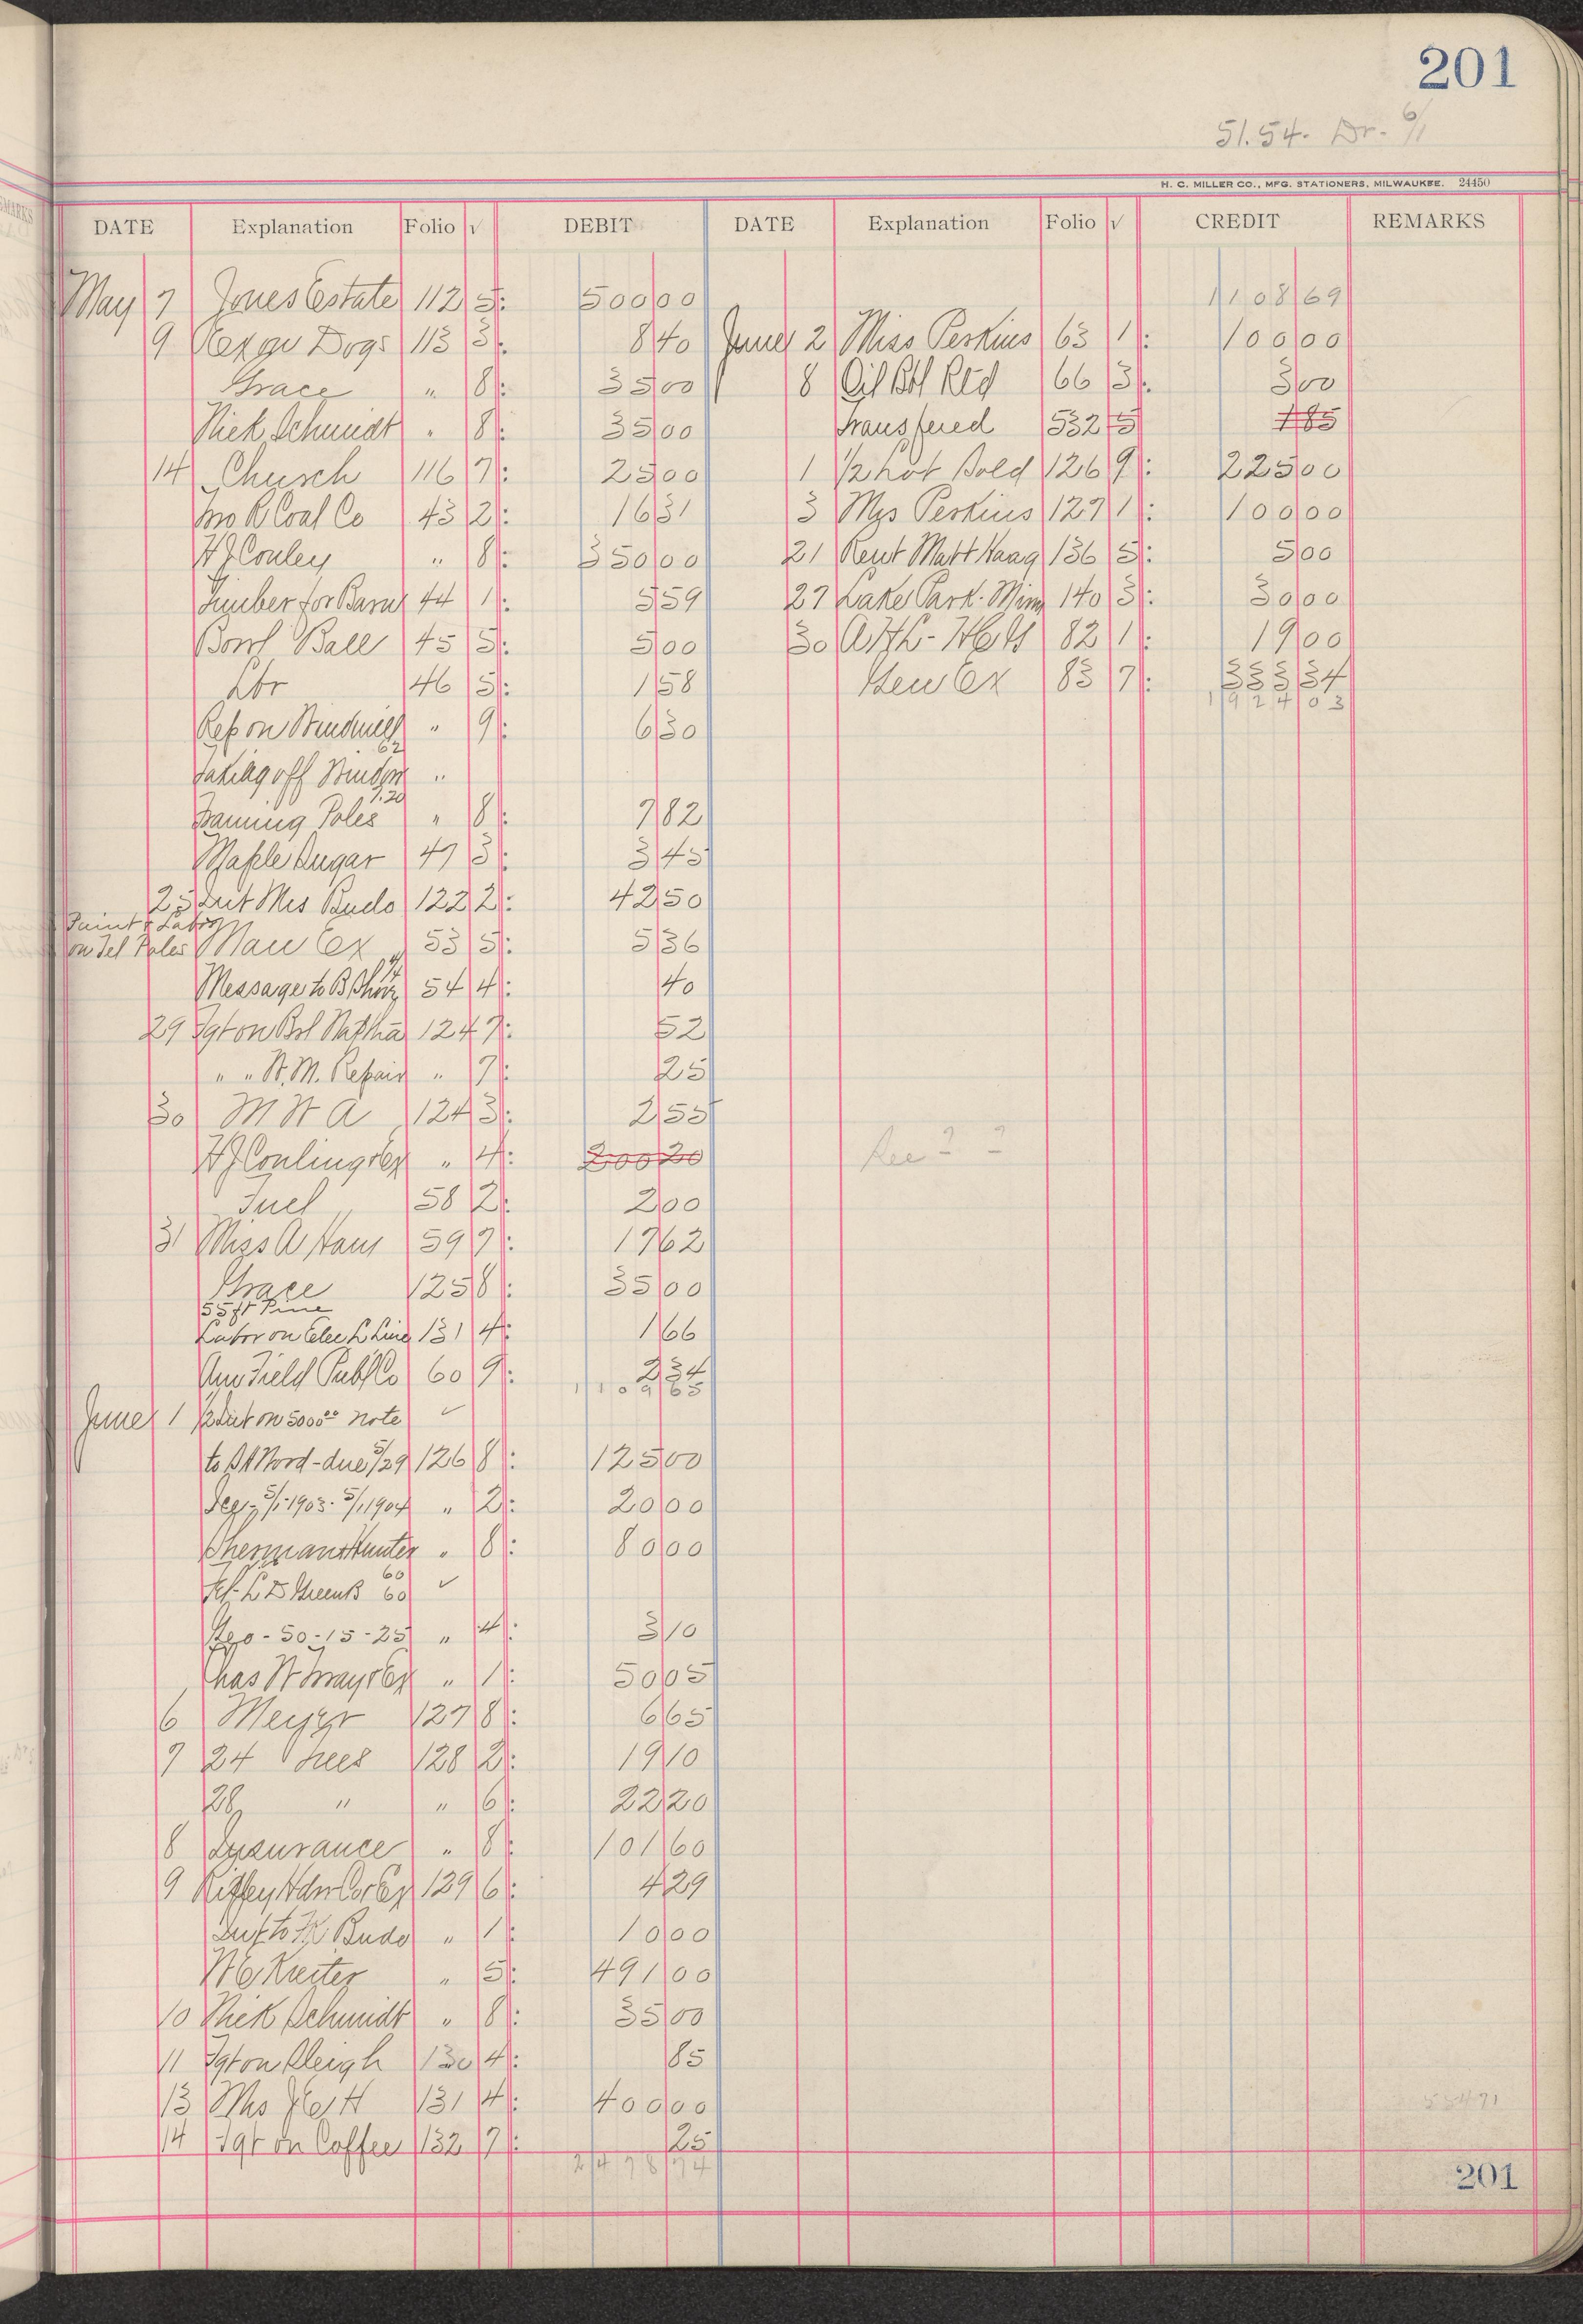 201
51.54. Dr. 6/1
H. C. MILLER CO., MFG. STATIONERS, MILWAUKEE. 24450
DATE Explanation Folio √ DEBIT DATE Explanation Folio √ CREDIT REMARKS
May 7 Jones Estate 112 5 500 00
9 Dogs 113 3 8 40
Grace " 8 35 00
Nick Schmidt " 8 35 00
14 Church 116 7 25 00
Coal Co 43 2 16 31
H J Conley " 8 350 00
Timber for Barns 44 1 5 59
Ball 45 5 5 00
Lbr 46 5 1 58
Rep on Windmill " 9 6 30
62
Taking off "
7.20
Poles " 8 7 82
Maple Sugar 47 3 3 45
25 Int Mrs Budo 122 2 42 50
Paint & Labor
on Tel Poles Ex 53 5 5 36
Message to 54 4 40
29 Fgt on Brl Naptha 124 7 52
" " W. M. Repair " 7 25
30 M W A 124 3 2 55
" 4 200 20
Fuel 58 2 2 00
31 Miss A 59 7 17 62
Grace 125 8 35 00
55 ft Pine
Labor on Elec L Line 131 4 1 66
Am Field Pub Co 60 9 2 34
1109 65
June 1 1/2 Int on 5000 00 note ✓
to Nord - due 5/29 126 8 125 00
5/1-1903 - 5/1 1904 " 2 20 00
Sherman Hunter " 8 80 00
60
60 ✓
50-15-25 " 4 3 10
Chas " 1 50 05
6 Meyer 127 8 6 65
7 24 Trees 128 2 19 10
28 " " 6 22 20
8 Insurance " 8 101 60
9 129 6 4 29
Budo " 1 10 00
" 5 491 00
10 Nick Schmidt " 8 35 00
11 Fgt on Sleigh 130 4 85
13 131 4 400 00
14 Fgt on Coffee 132 7 25
2478 74
1108 69
June 2 Miss Perkins 63 1 100 00
8 Oil Bbl Rtd 66 3 3 00
Transfered 532 5 1 85
1 1/2 Lot Sold 126 9 225 00
3 Mrs Perkins 127 1 100 00
21 Rent Matt Haag 136 5 5 00
27 Lake Park. 140 3 30 00
30 82 1 19 00
Ex 83 7 333 34
1924 03
Rec ? ?
201